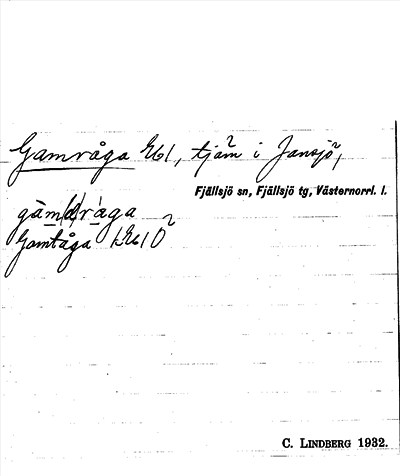 Gamråga Eko1, tjärn i Jansjö,
Fjällsjö sn, Fjällsjö tg, Västernorrl. l.
gam(d)råga
Gomtåga
C. LINDBERG 1932.